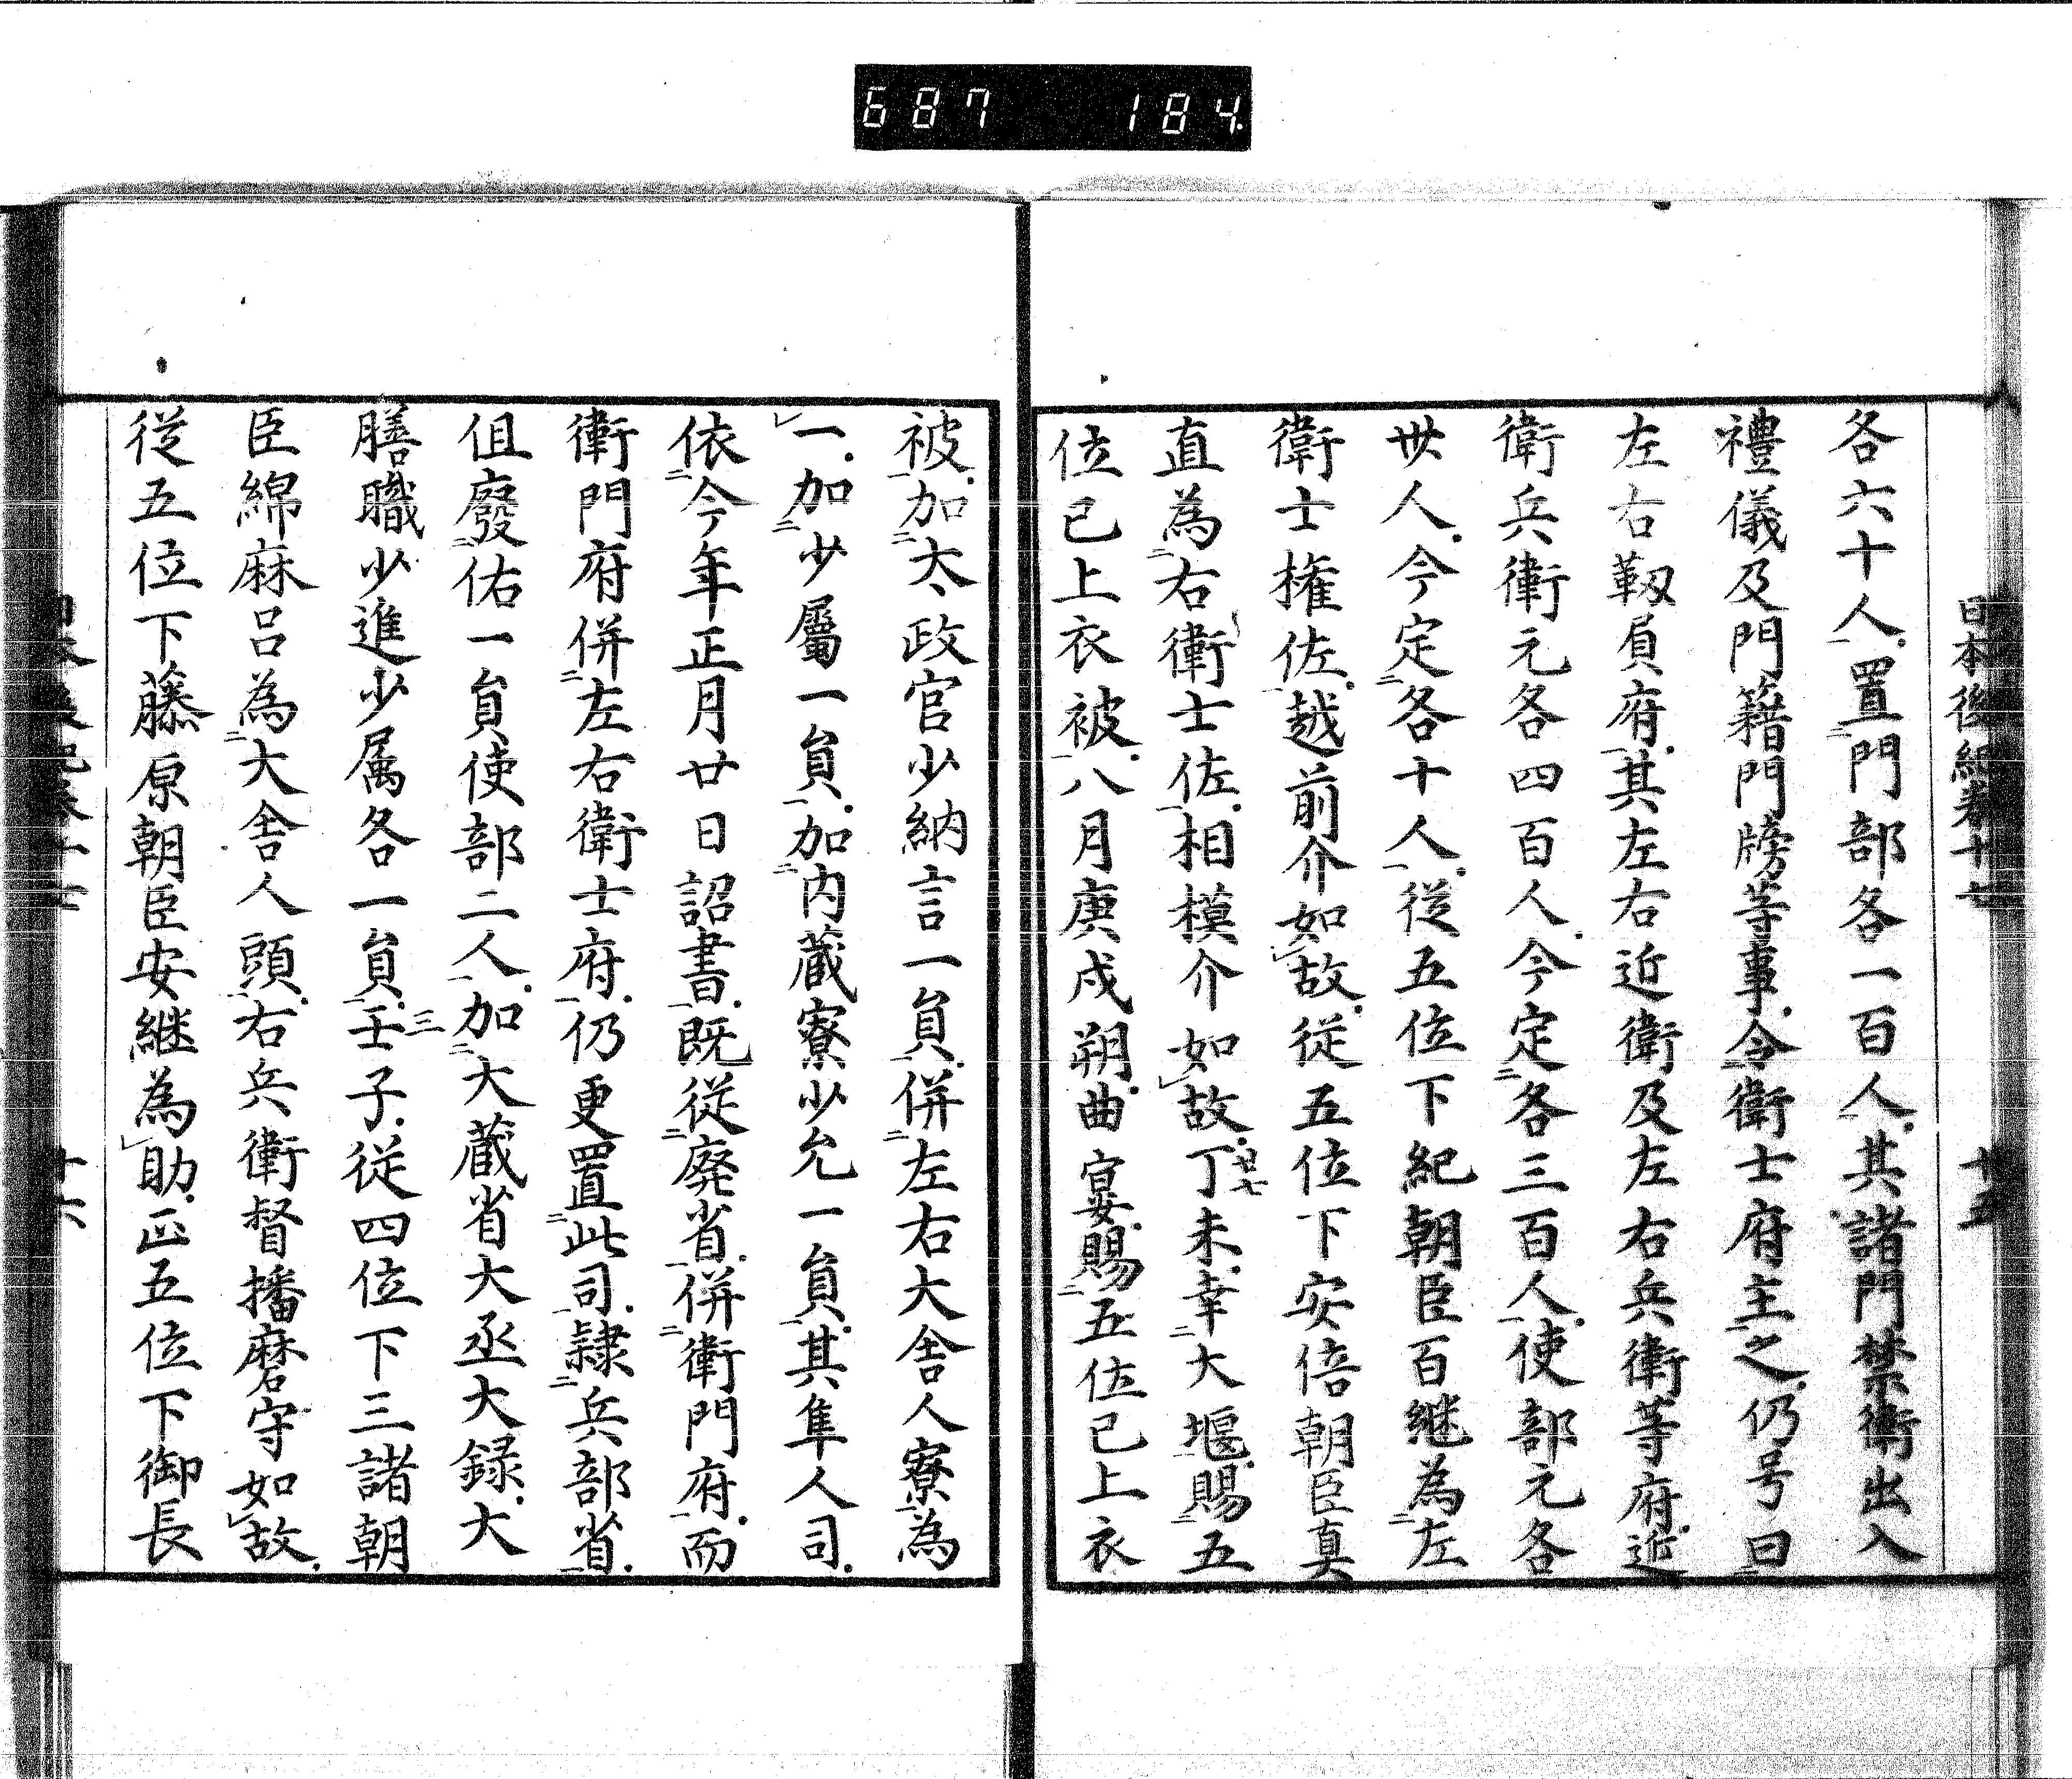 687 184
日本後紀卷十七 廿五
各六十人置門部各一百人其諸門禁衛出入
禮儀及門籍門牓等事令衛士府主之仍号曰
左右靱負府其左右近衛及左右兵衛等府近
衛兵衛元各四百人今定各三百人使部元各
丗人今定各十人従五位下紀朝臣百継為左
衛士権佐越前介如故従五位下安倍朝臣真
直為右衛士佐相模介如故丁未幸大堰賜五
廿七
位已上衣被八月庚戌朔曲宴賜五位已上衣
被加太政官少納言一員併左右大舎人寮為
一加少屬一員加内蔵寮少允一員其隼人司
依今年正月廿日詔書既従廃省併衛門府而
衛門府併左右衛士府仍更置此司隷兵部省
但廢佑一員使部二人加大蔵省大丞大録大
膳職少進少属各一員壬子従四位下三諸朝
三
臣綿麻呂為大舎人頭右兵衛督播磨守如故
従五位下藤原朝臣安継為助正五位下御長
十六